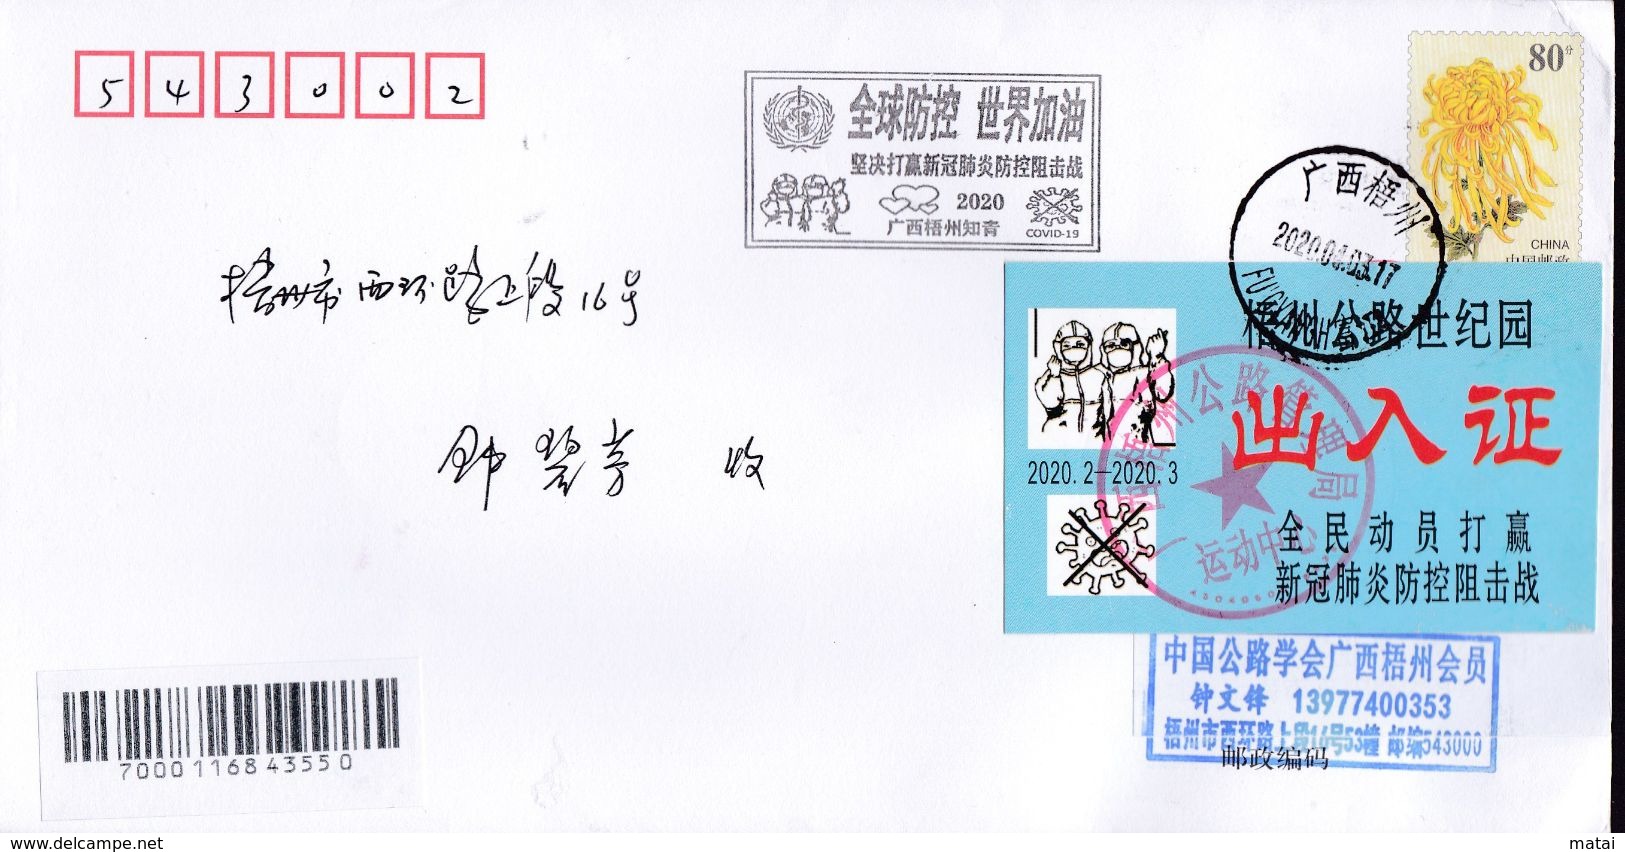 543002
80分
CHINA
中国邮政
全球防控 世界加油
坚决打赢新冠肺炎防控阻击战
2020
广西梧州知青
COVID-19
广西梧州
梧州市西环路上段16号
钟碧芳 收
梧州公路世纪园
出入证
2020.2—2020.3
全民动员打赢
新冠肺炎防控阻击战
梧州公路管理局
运动中心
中国公路学会广西梧州会员
钟文锋 13977400353
梧州市西环路上段16号53幢 邮编543000
邮政编码
7000116843550
matai